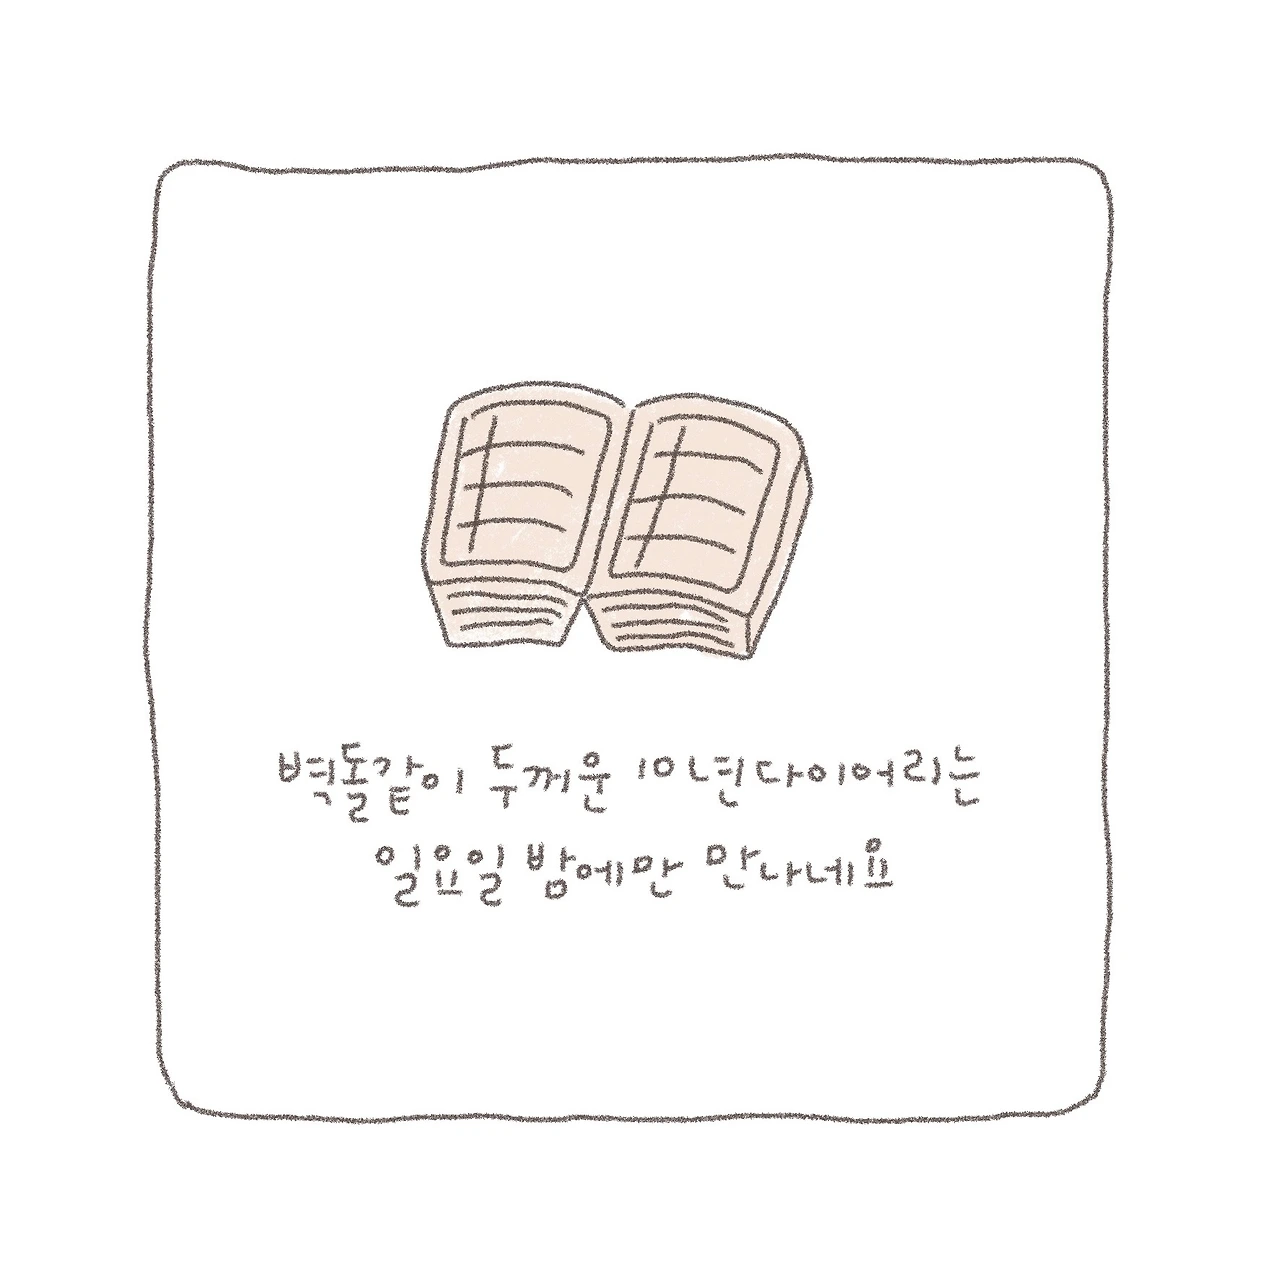 벽돌같이 두꺼운 10년다이어리는
일요일 밤에만 만나네요